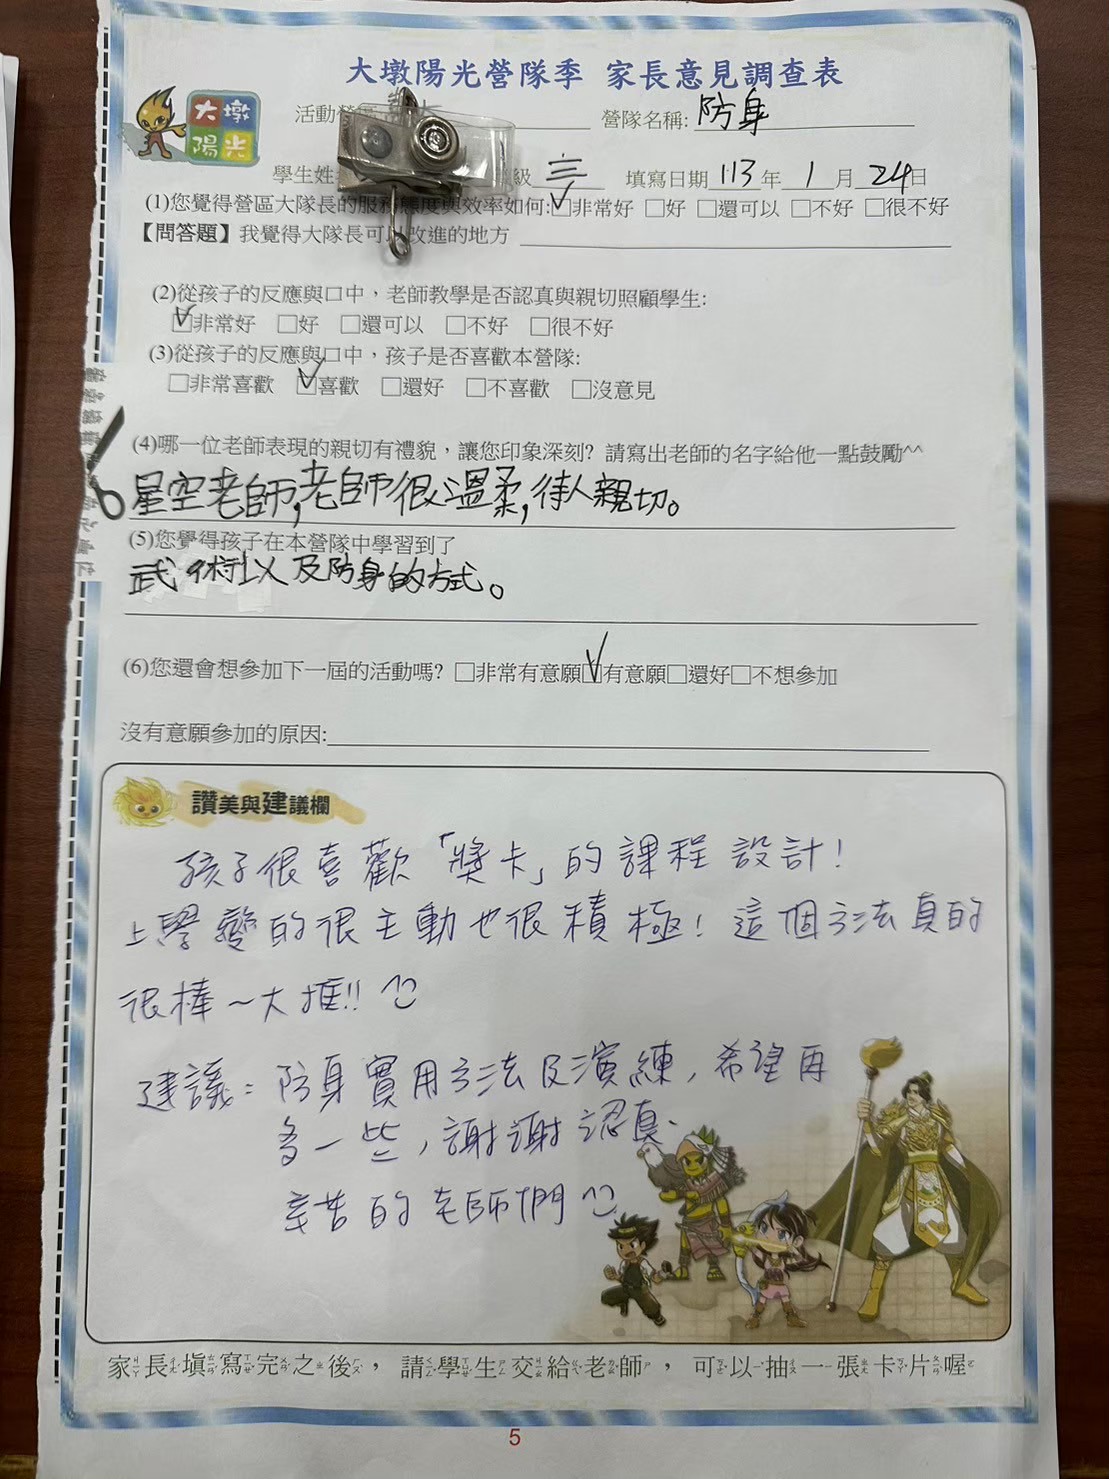 大墩陽光營隊季 家長意見調查表
大墩
陽光
活動營 營隊名稱: 防身
學生姓 級 三 填寫日期 113 年 1 月 24 日
(1)您覺得營區大隊長的服務態度與效率如何:☑非常好 □好 □還可以 □不好 □很不好
【問答題】我覺得大隊長可以改進的地方
(2)從孩子的反應與口中，老師教學是否認真與親切照顧學生:
☑非常好 □好 □還可以 □不好 □很不好
(3)從孩子的反應與口中，孩子是否喜歡本營隊:
□非常喜歡 ☑喜歡 □還好 □不喜歡 □沒意見
(4)哪一位老師表現的親切有禮貌，讓您印象深刻? 請寫出老師的名字給他一點鼓勵^^
星空老師,老師很溫柔,待人親切。
(5)您覺得孩子在本營隊中學習到了
武術以及防身的方式。
(6)您還會想參加下一屆的活動嗎? □非常有意願☑有意願□還好□不想參加
沒有意願參加的原因:
讚美與建議欄
孩子很喜歡「獎卡」的課程設計!
上學變的很主動也很積極! 這個方法真的
很棒~大推!!
建議: 防身實用方法及演練, 希望再
多一些, 謝謝認真、
辛苦的老師們
家長填寫完之後，請學生交給老師，可以抽一張卡片喔
5